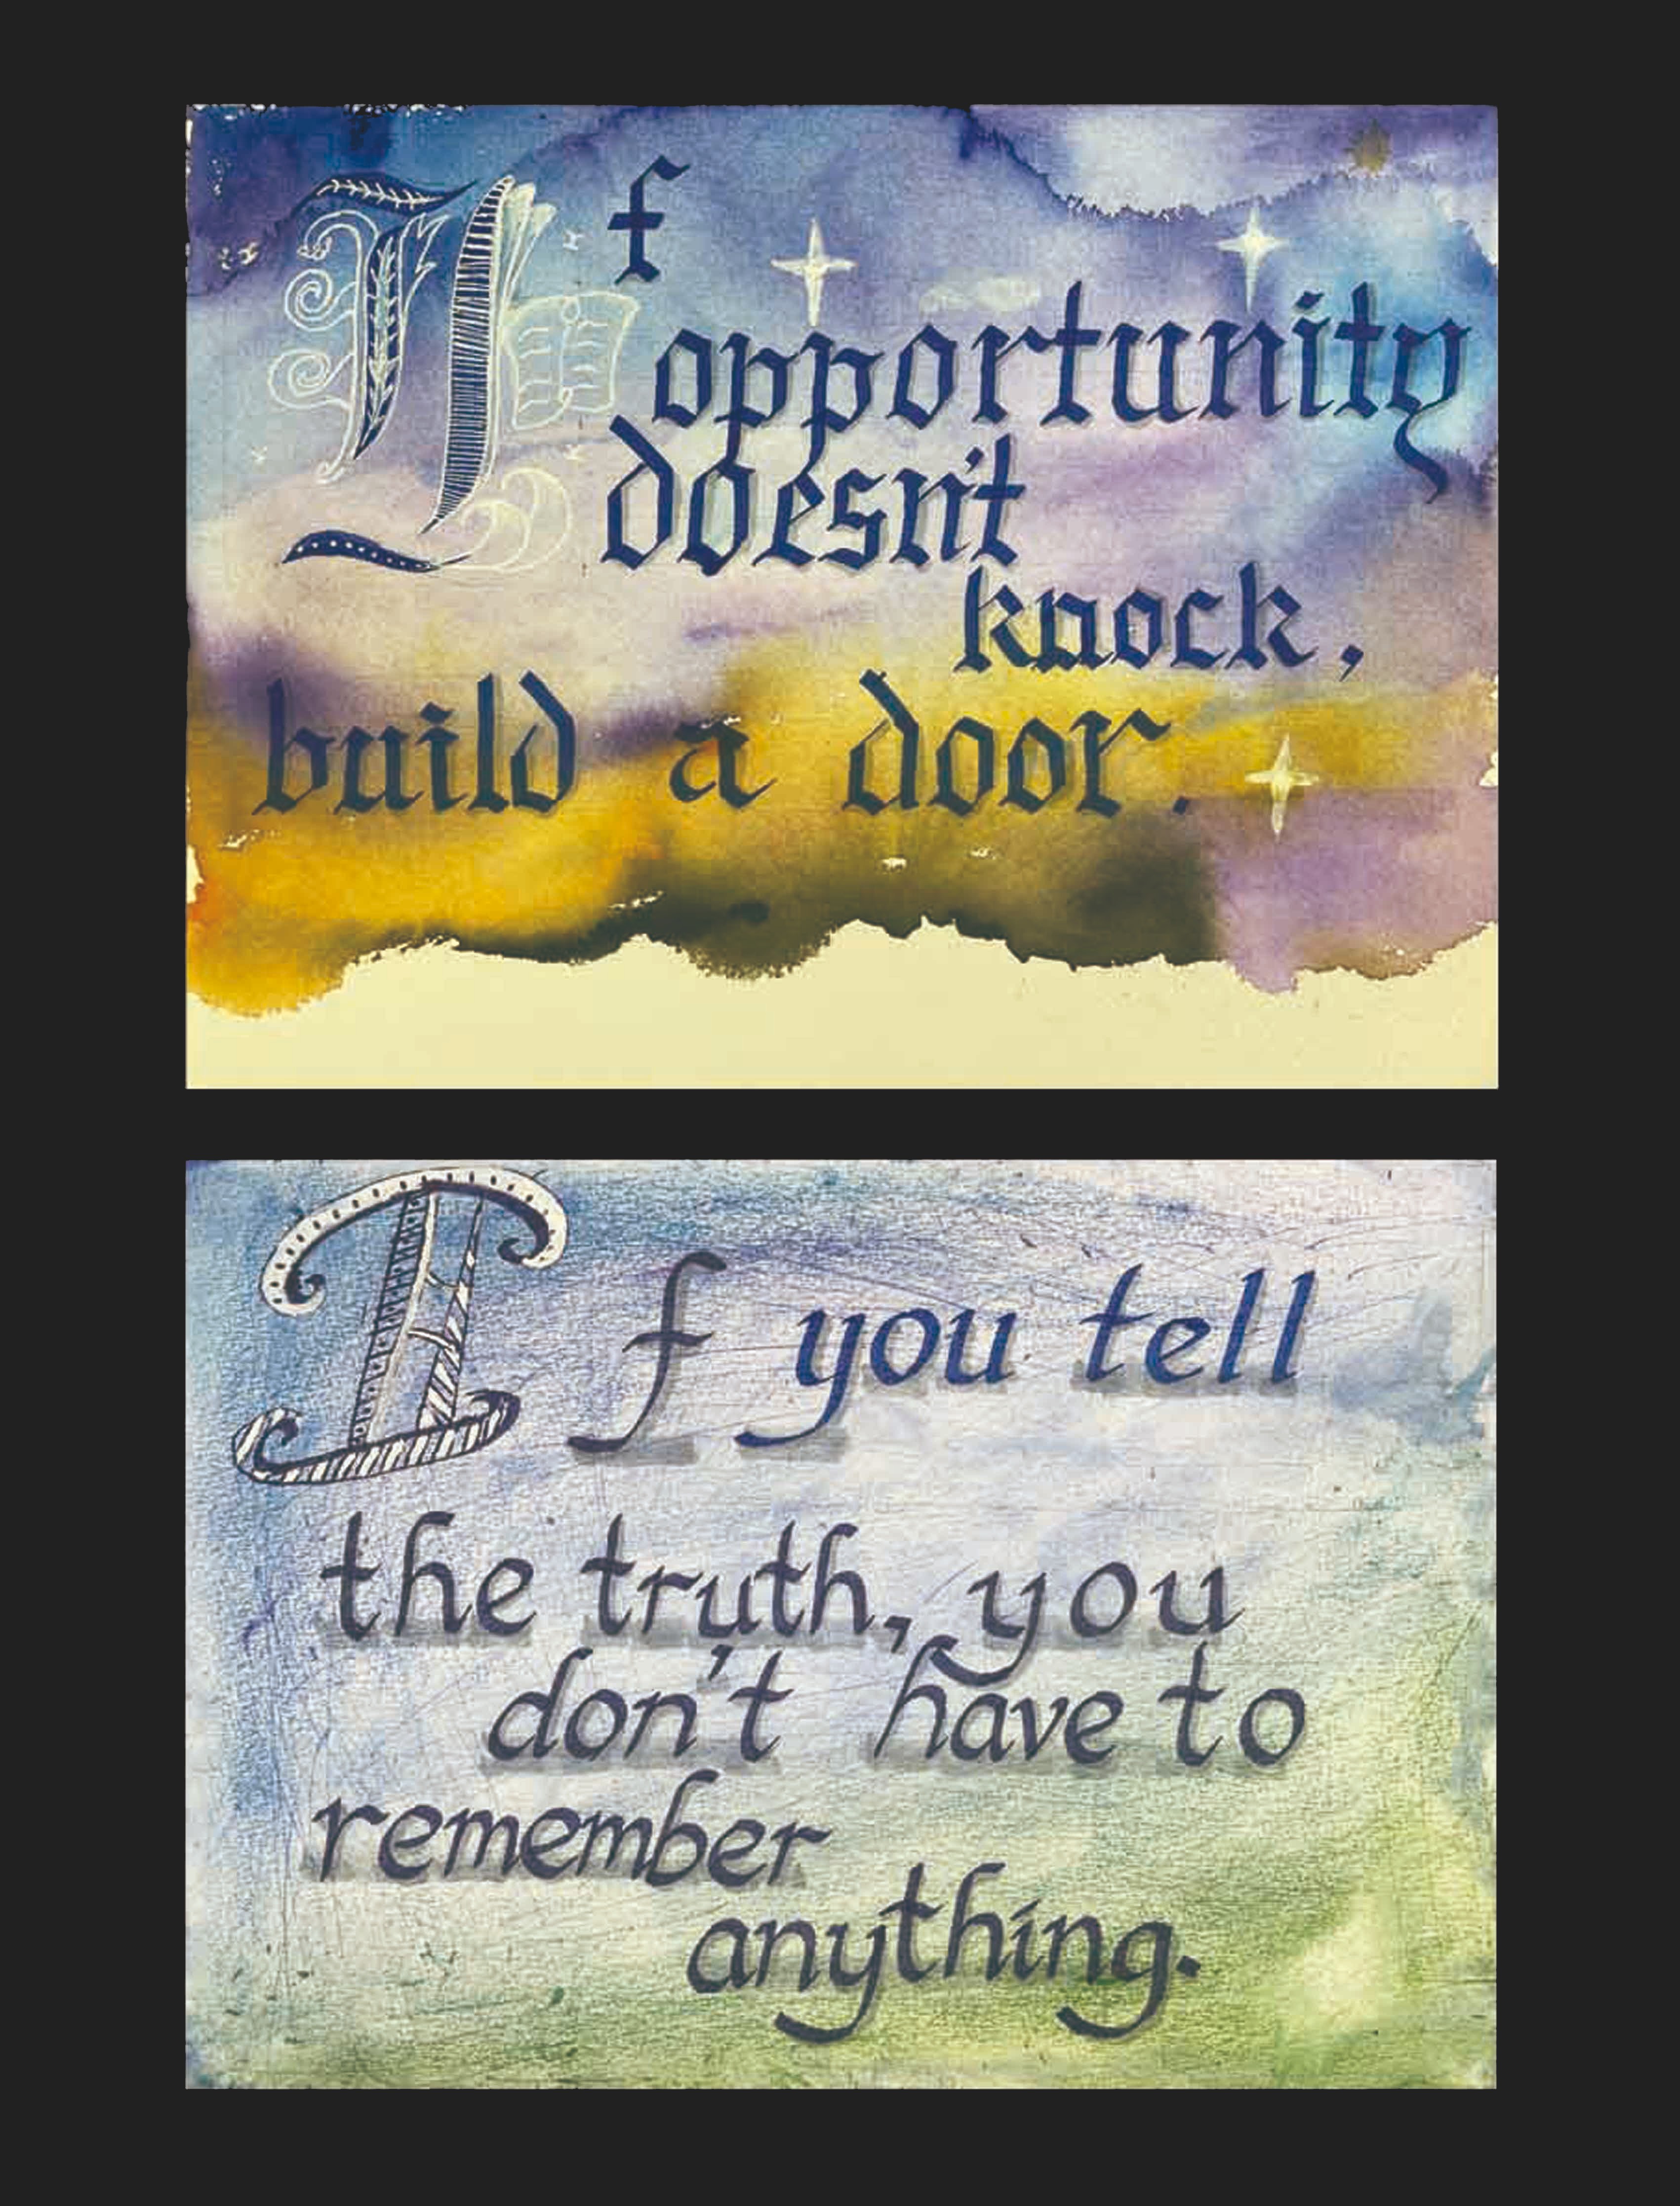 If
opportunity
doesn't
knock,
build a door.
If you tell
the truth, you
don't have to
remember
anything.